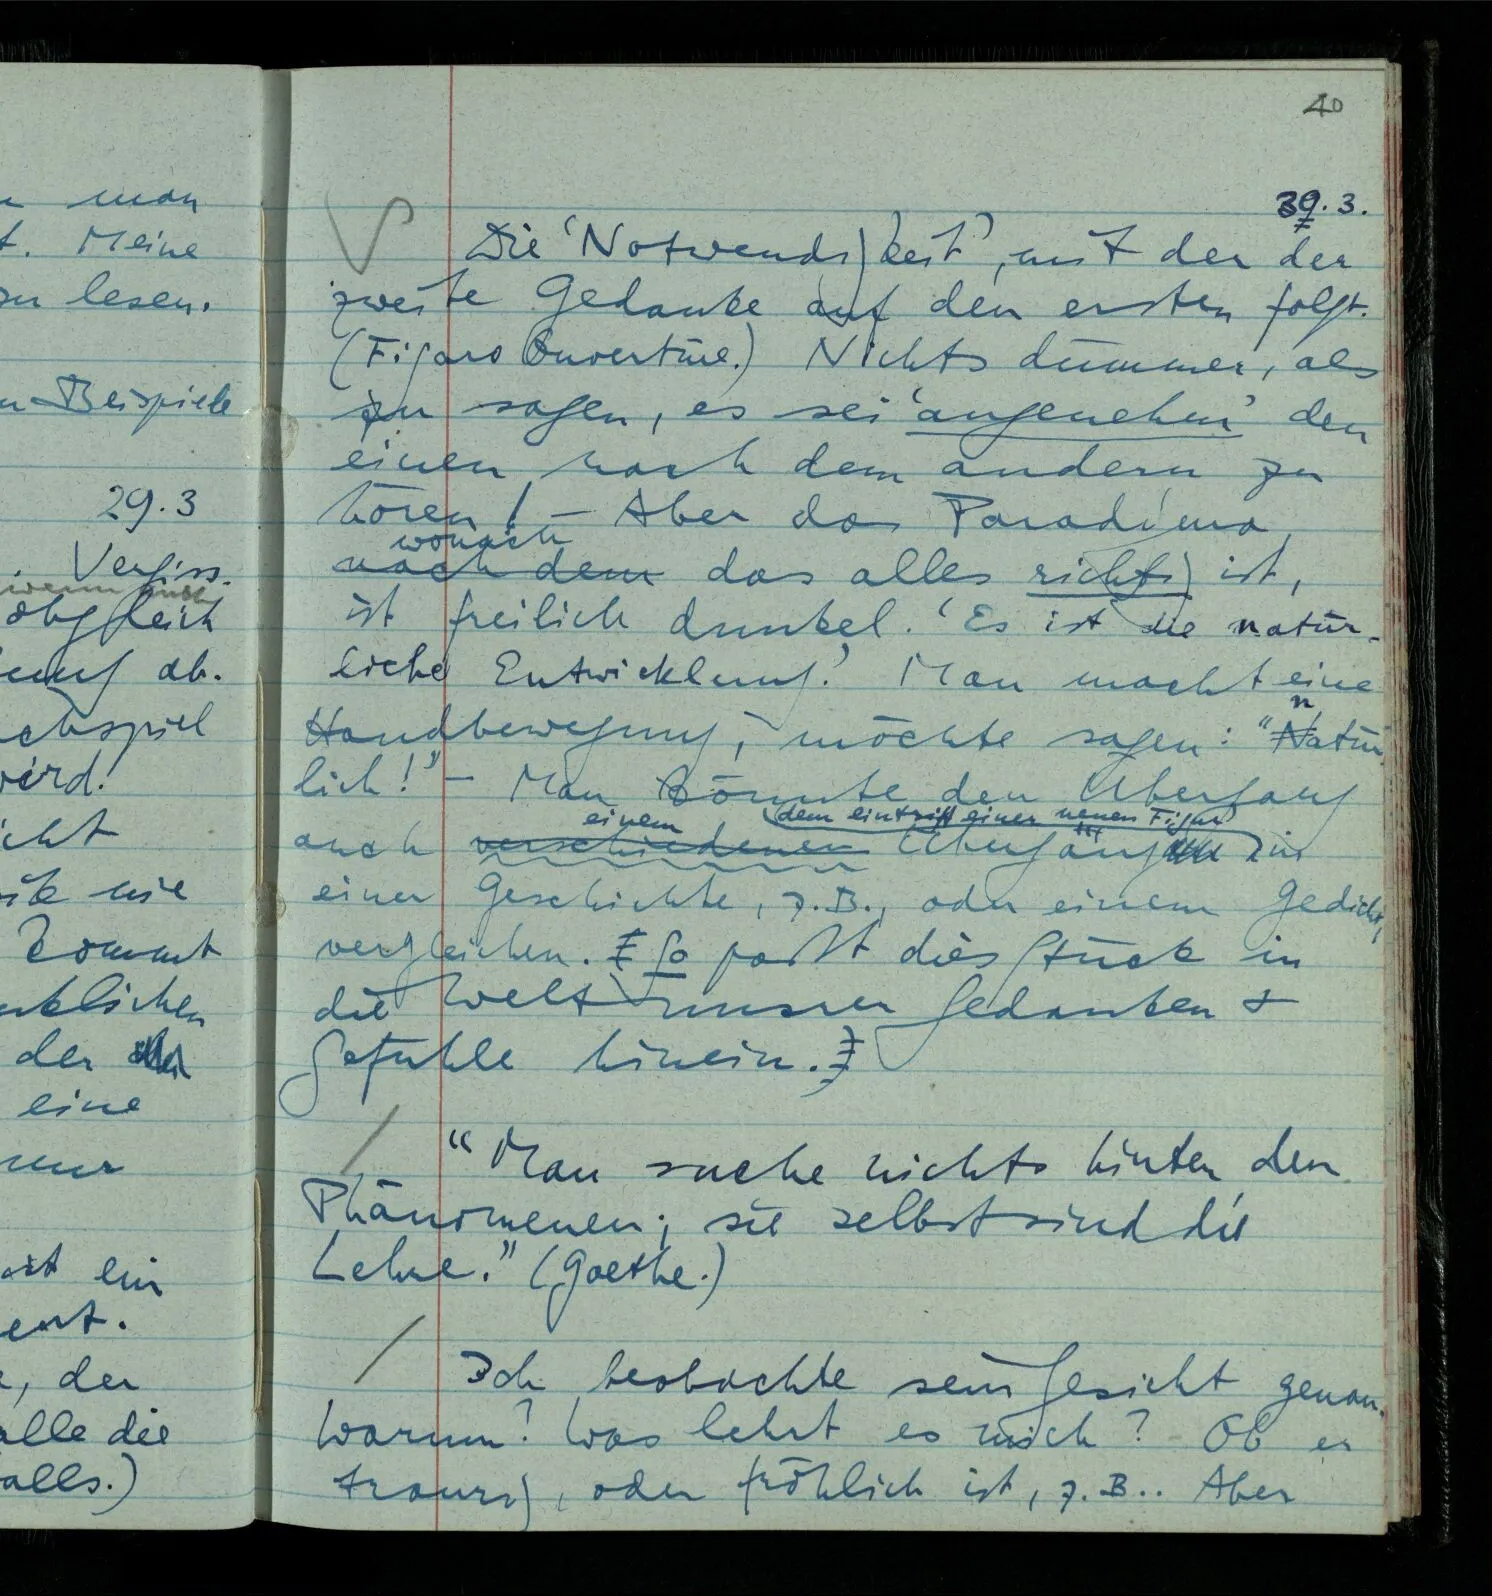 man
t. Meine
zu lesen.
Beispiele
29.3
Vergiss-
wenn auch
obgleich
ab.
wird!
icht
wie
kommt
der
eine
nur
ist ein
ent.
, der
alle die
alls.)
40
30. 3.
Die 'Notwendigkeit', mit der der
zweite Gedanke auf den ersten folgt.
(Figaro Ouvertüre.) Nichts dümmer, als
zu sagen, es sei 'angenehm' den
einen nach dem andern zu
hören! – Aber das Paradigma,
wonach
nach dem das alles richtig ist,
ist freilich dunkel. 'Es ist die natür-
liche Entwicklung.' Man macht eine
Handbewegung, möchte sagen: "Natür
n
lich!" – Man könnte den Übergang
einem dem Eintritt einer neuen Figur
auch verschiedenen Übergängen in
einer Geschichte, z.B., oder einem Gedicht,
vergleichen. So paßt dies Stück in
die Welt unsrer Gedanken &
Gefühle hinein.
"Man suche nichts hinter den
Phänomenen; sie selbst sind die
Lehre." (Goethe.)
Ich beobachte sein Gesicht genau.
Warum? Was lehrt es mich? Ob er
traurig, oder fröhlich ist, z.B.. Aber